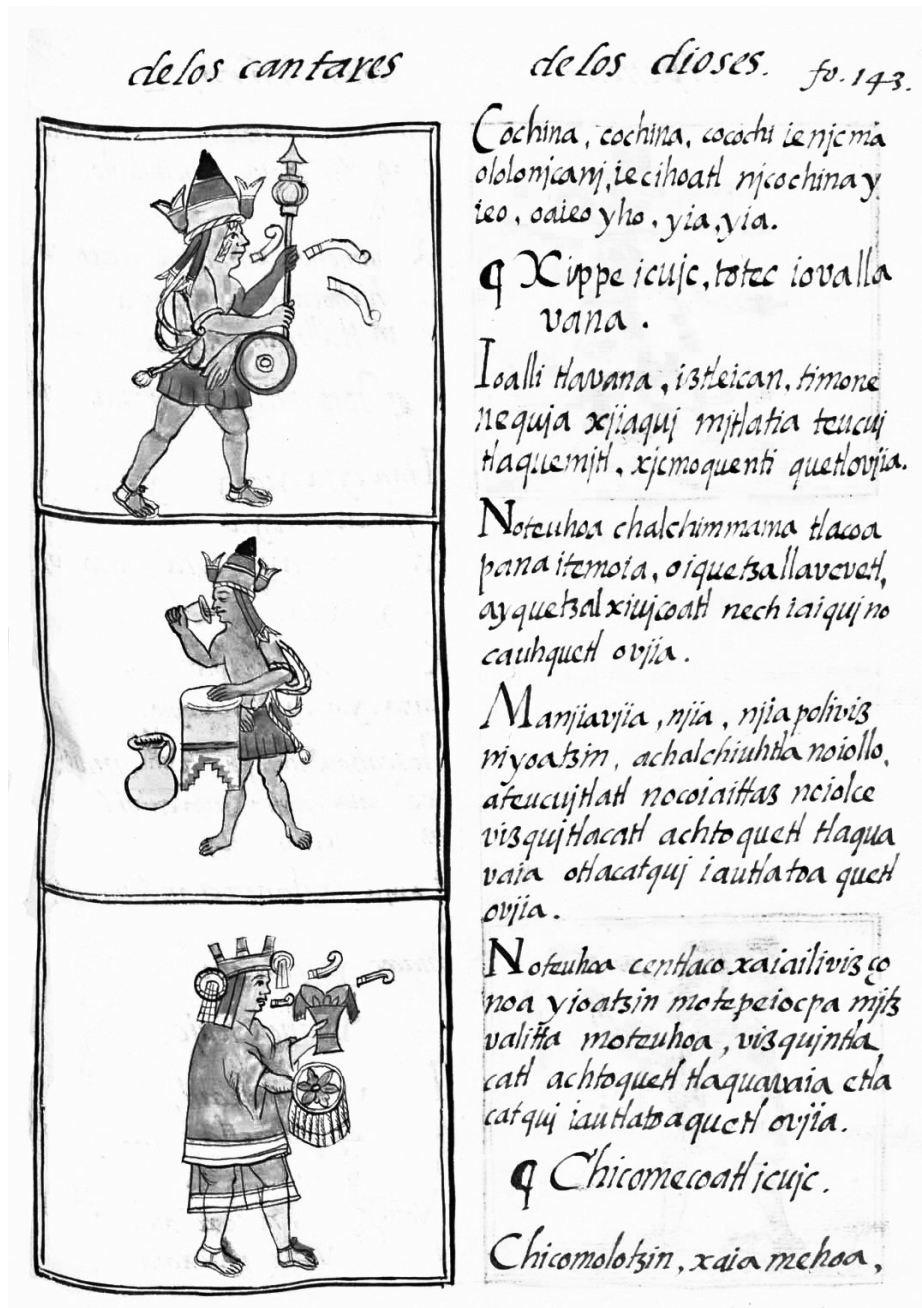 de los cantares
de los dioses. fo. 143.
Cochina, cochina, cocochi ie njcma
ololonjcanj, ie cihoatl njcochina y
ieo, oaieo yho, yia, yia.
¶ Xippe icujc, totec iovalla
vana.
Ioalli tlavana, iztleican, timone
nequja xjiaquj mjtlatia teucuj
tlaquemjtl, xjcmoquenti quetlovjia.
Noteuhoa chalchimmama tlacoa
pana itemoia, oiquetzallavevetl,
ay quetzal xiujcoatl nech iaiquj no
cauhquetl ovjia.
Manjiavjia, njia, njia poliviz
niyoatzin, achalchiuhtla noiollo,
ateucujtlatl nocoiaittaz noiolce
vizqujtlacatl achtoquetl tlaqua
vaia otlacatquj iautlatoa quetl
ovjia.
Noteuhoa centlaco xaiailiviz ço
noa yioatzin motepeiocpa mjtz
valitta moteuhoa, vizqujntla
catl achtoquetl tlaquavaia etla
catquj iautlatoaquetl ovjia.
¶ Chicomecoatl icujc.
Chicomolotzin, xaia mehoa,